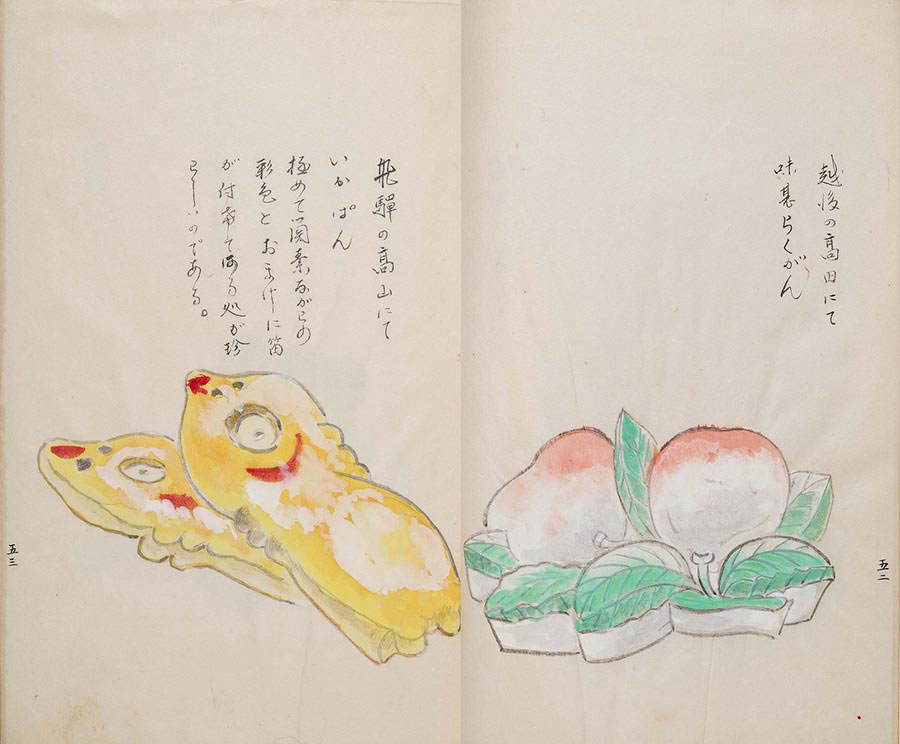 越後の高田にて
味甚らくがん
五二
飛驒の高山にて
いかぱん
極めて簡素ながらの
彩色とおまけに笛
が付てある処が珍
らしいのである。
五三